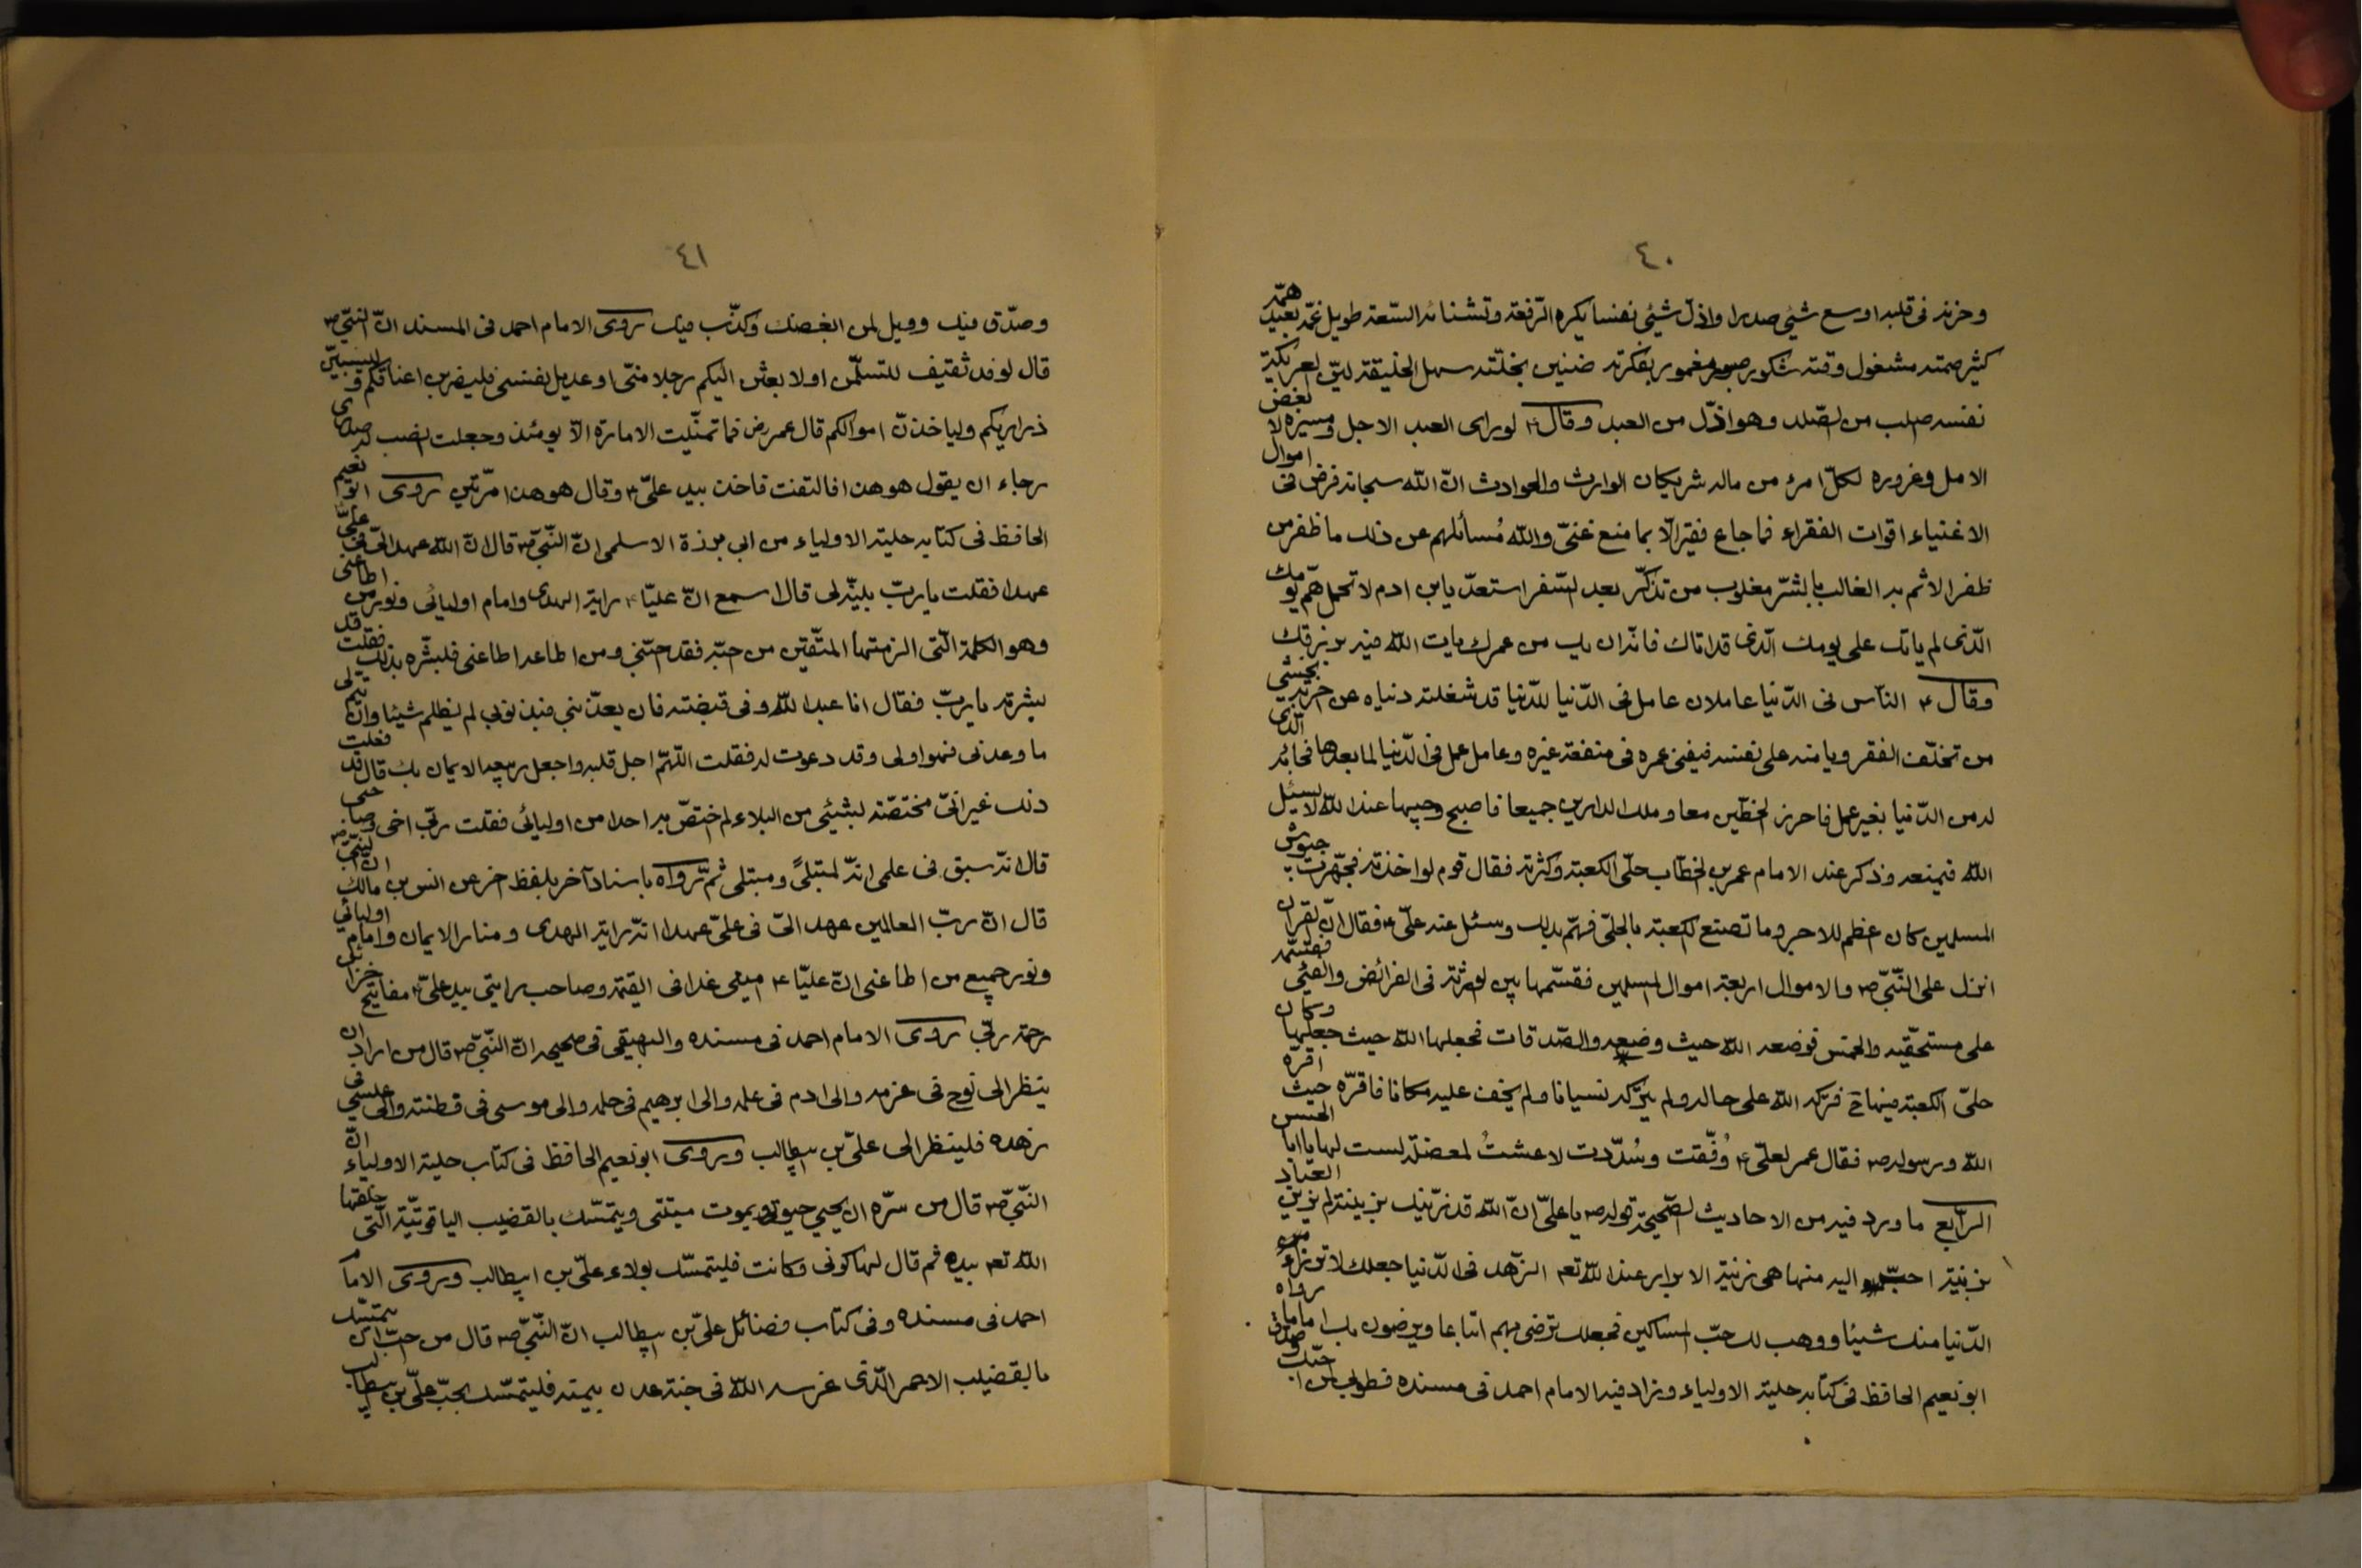 ٤٠
وحزنه فى قلبه اوسع شيئ صدرا واذلّ شيئ نفسا يكره الرّفعة وتشنائه السّعة طويل غمّه بعيد همّه
كثير صمته مشغول وقته شكور صبور مغمور بفكرته ضنين بخلّته سهل الخليقة ليّن العريكة
نفسه صلب من الصّلد وهو اذلّ من العبد وقال ۴ لو راى العبد الاجل ومسيره لا بغض
الامل وغروره لكلّ امرء من ماله شريكان الوارث والحوادث انّ الله سبحانه فرض فى اموال
الاغنياء اقوات الفقراء فما جاع فقير الّا بما منع غنىّ والله مُسائلهم عن ذلك ما ظفر من
ظفر الاثم به الغالب بالشّر مغلوب من تذكّر بعد السّفر استعدّ يابن ادم لا تحمل همّ يومك
الّذى لم ياتك على يومك الّذى قد اتاك فانّه ان يك من عمرك يات الله فيه برزقك
وقال ۴ النّاس فى الدّنيا عاملان عامل فى الدّنيا للدّنيا قد شغلته دنياه عن اخرته يخشى
من تخلّف الفقر ويامنه على نفسه فيفنى عمره فى منفعة غيره وعامل عمل فى الدّنيا لما بعدها فجائه الّذى
له من الدّنيا بغير عمل فاحرز الحظّين معا وملك الدارين جميعا فاصبح وجيها عند الله لا يسئل
الله فيمنعه وذكر عند الامام عمر بن الخطّاب حلّى الكعبة وكثرته فقال قوم لو اخذته فجهّزت به جيوش
المسلمين كان اعظم للاجر وما تصنع الكعبة بالحلّى فهمّ بذلك وسئل عنه علىّ ۴ فقال انّ القران
انزل على النّبىّ ص والاموال اربعة اموال المسلمين فقسّمها بين الورثة فى الفرائض والفيئ فقسّمه
على مستحقّيه والخمس فوضعه الله حيث وضعه والصّدقات فجعلها الله حيث جعلها وكان
حلىّ الكعبة فيها فتركه الله على حاله ولم يتركه نسيانا ولم يخف عليه مكانا فاقرّه حيث اقره
الله ورسوله ص فقال عمر لعلىّ ۴ وُفّقت وسُدّدت لا عشتُ لمعضلة لست لها يا ابا الحسن
الرّابع ما ورد فيه من الاحاديث الصّحيحة قوله ص يا علىّ انّ الله قد زيّنك بزينة لم يزيّن العباد
بزينة احبّ اليه منها هى زينة الابرار عند الله تعم الزّهد فى الدّنيا جعلك لا ترزاء من
الدّنيا منك شيئا ووهب لك حبّ المساكين فجعلك ترضى بهم اتباعا ويرضون بك اماما رواه
ابو نعيم الحافظ فى كتابه حلية الاولياء وزاد فيه الامام احمد فى مسنده فطوبى لمن احبّك
٤١
وصدّق فيك وويل لمن ابغضك وكذّب فيك روى الامام احمد فى المسند انّ النّبىّ ص
قال لوفد ثقيف لتسلمّن او لابعثن اليكم رجلا منّى او عديل نفسى فليضربن اعناقكم وليسبينّ
ذراريكم ولياخذنّ اموالكم قال عمر رض فما تمنّيت الامارة الّا يومئذ وجعلت انصب له صدرى
رجاء ان يقول هو هذا فالتفت فاخذ بيد علىّ ۴ وقال هو هذا مرّتين روى ابو نعيم
الحافظ فى كتابه حلية الاولياء من ابى برزة الاسلمى انّ النّبىّ ص قال انّ الله عهد الىّ فى علىّ
عهدا فقلت يا ربّ بيّنه لى قال اسمع انّ عليّا ۴ راية الهدى وامام اوليائى ونور من اطاعنى
وهو الكلمة الّتى الزمتها المتّقين من حبّه فقد حبّنى ومن اطاعه اطاعنى فبشّره بذلك فقلت قد
بشرته يا ربّ فقال انا عبد الله وفى قبضته فان يعذّبنى فبذنوبى لم يظلم شيئا وان يتم لى
ما وعدنى فهو اولى وقد دعوت له فقلت اللّهمّ اجل قلبه واجعل ربيعه الايمان بك قال قد فعلت
ذلك غير انّى مختصّه بشيئ من البلاء لم اختصّ به احدا من اوليائى فقلت ربّ اخى وصاحبى
قال انّه سبق فى علمى انّه لمبتلىً ومبتلى ثمّ رواه باسناد آخر بلفظ اخر عن انس بن مالك انّ النبىّ ص
قال انّ ربّ العالمين عهد الىّ فى علىّ عهدا انّه راية الهدى ومنار الايمان وامام اوليائى
ونور جميع من اطاعنى انّ عليّا ۴ امينى غدا فى القيمة وصاحب رايتى بيد علىّ ۴ مفاتيح خزائن
رحمة ربّى روى الامام احمد فى مسنده والبهيقى فى صحيحه انّ النّبىّ ص قال من اراد ان
ينظر الى نوح فى عزمه والى ادم فى علمه والى ابرهيم فى حلمه والى موسى فى فطنته والى عيسى فى
زهده فلينظر الى علىّ بن ابيطالب وروى ابو نعيم الحافظ فى كتاب حلية الاولياء انّ
النّبىّ ص قال من سرّه ان يحيى حيوتى ويموت ميتتى ويتمسّك بالقضيب الياقوتيّة الّتى خلقها
الله تعم بيده ثم قال لها كونى فكانت فليتمسّك بولاء علىّ بن ابيطالب وروى الامام
احمد فى مسنده وفى كتاب فضائل علىّ بن ابيطالب انّ النّبىّ ص قال من احبّ ان يتمسّك
بالقضيب الاحمر الّذى غرسه الله فى جنة عدن بيمينه فليتمسّك بحبّ علىّ بن ابيطالب